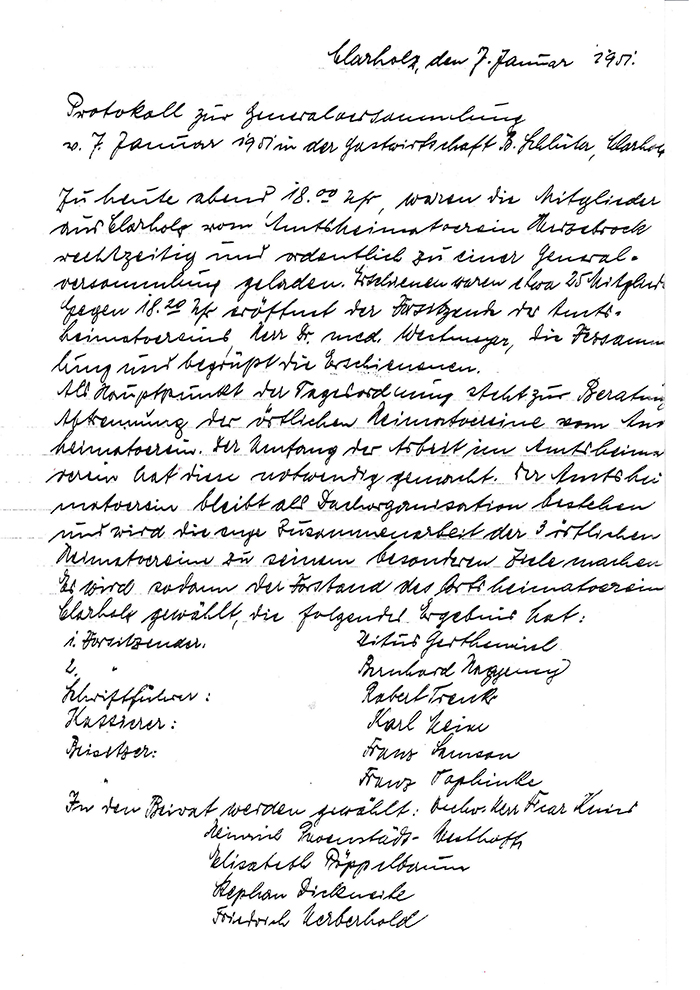 Clarholz, den 7. Januar 1951.
Protokoll zur Generalversammlung
v. 7. Januar 1951 in der Gastwirtschaft B. Schlüter, Clarholz
Zu heute abend 18.00 Uhr, waren die Mitglieder
aus Clarholz vom Amtsheimatverein Herzebrock
rechtzeitig und ordentlich zu einer General-
versammlung geladen. Erschienen waren etwa 25 Mitglied
Gegen 18.20 Uhr eröffnet der Vorsitzende des Amts-
heimatvereins Herr Dr. med. Westmeyer, die Versamm
lung und begrüßt die Erschienenen.
Als Hauptpunkt der Tagesordnung steht zur Beratung
Abtrennung der örtlichen Heimatvereine vom Am
heimatverein. Der Umfang der Arbeit im Amtsheima
verein hat diese notwendig gemacht. Der Amtshei
matverein bleibt als Dachorganisation bestehen
und wird die enge Zusammenarbeit der 3 örtlichen
Heimatvereine zu seinem besonderen Ziele machen
Es wird sodann der Vorstand des Ortsheimatverein
Clarholz gewählt, die folgendes Ergebnis hat:
1. Vorsitzender. Titus
2. " Bernhard
Schriftführer: Robert
Kassierer: Karl Heine
Beisitzer: Franz Samson
" Franz Tophinke
In den Beirat werden gewählt: Herr
Heinrich
Elisabeth Pöppelbaum
Stephan
Friedrich